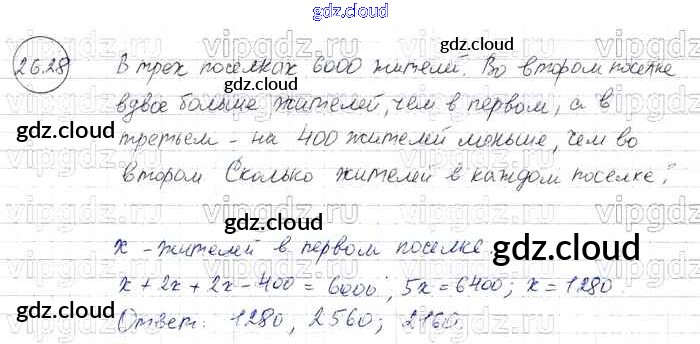 gdz.cloud
26.28
В трех поселках 6000 жителей. Во втором поселке
gdz.cloud
вдвое больше жителей, чем в первом, а в
gdz.cloud
третьем - на 400 жителей меньше, чем во
gdz.cloud
втором Сколько жителей в каждом поселке?
gdz.cloud
x - жителей в первом поселке.
gdz.cloud
x + 2x + 2x - 400 = 6000; 5x = 6400; x = 1280.
Ответ: 1280, 2560; 2160.
gdz.cloud
gdz.cloud